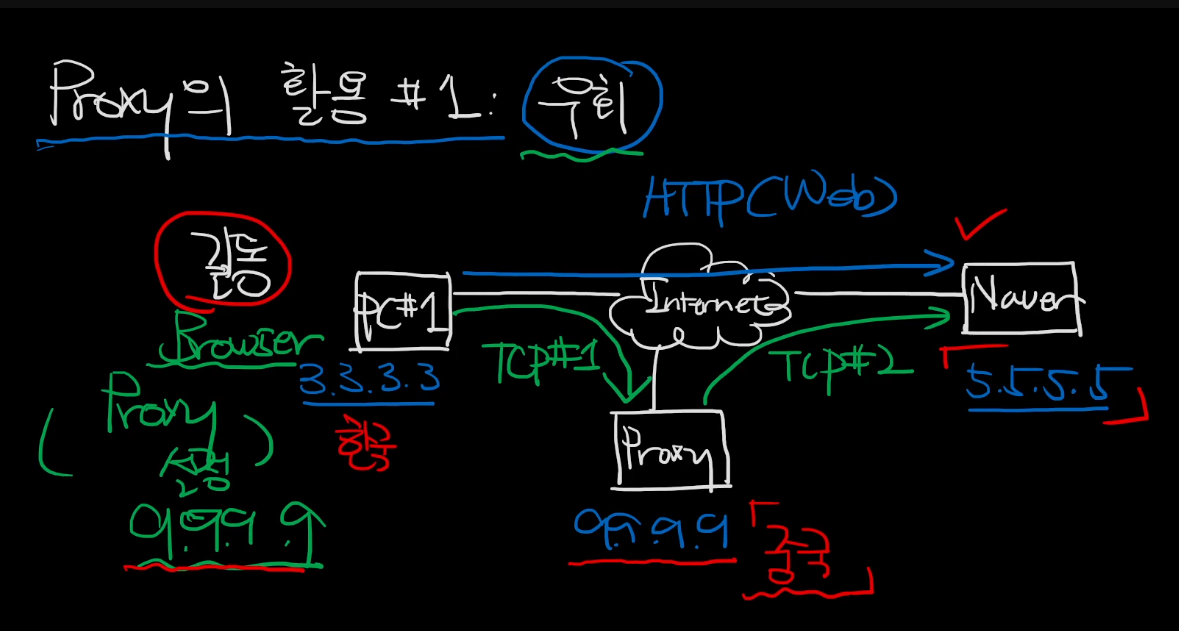 Proxy의 활용 #1: 우회
HTTP(Web)
길동
PC#1
Internet
Naver
Browser
3.3.3.3
TCP#1
TCP#2
5.5.5.5
(Proxy
설정)
한국
Proxy
9.9.9.9
9.9.9.9
중국